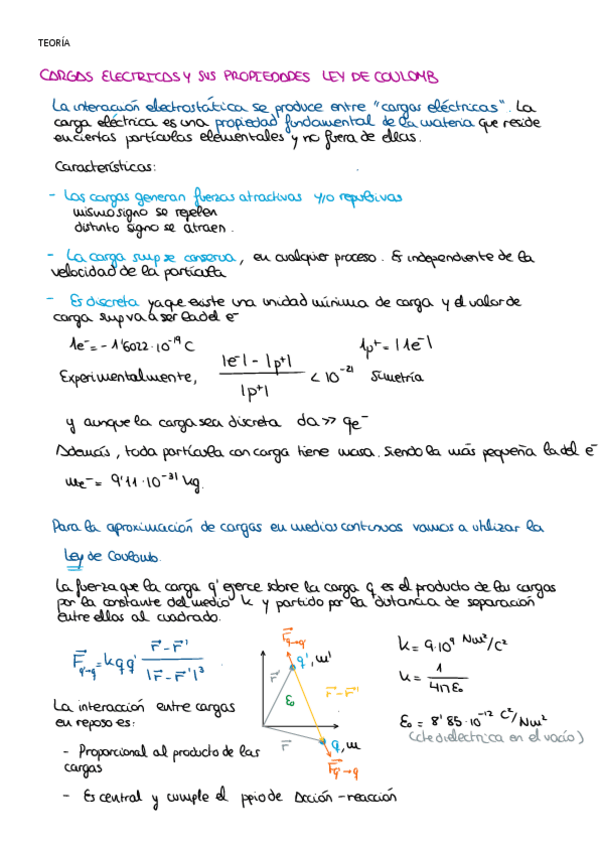 TEORÍA
CARGAS ELECTRICAS Y SUS PROPIEDADES LEY DE COULOMB
La interacción electrostática se produce entre "cargas eléctricas". La
carga eléctrica es una propiedad fundamental de la materia que reside
en ciertas partículas elementales y no fuera de ellas.
Características:
- Las cargas generan fuerzas atractivas y/o repulsivas
mismo signo se repelen
distinto signo se atraen.
- La carga smp se conserva, en cualquier proceso. Es independiente de la
velocidad de la partícula
- Es discreta ya que existe una unidad mínima de carga y el valor de
carga smp va a ser la del e⁻
1e⁻ = -1'6022·10⁻¹⁹ C 1p⁺ = |1e⁻|
Experimentalmente, |e⁻| - |p⁺| / |p⁺| < 10⁻²¹ simetría
y aunque la carga sea discreta dq >> qe⁻
Además, toda partícula con carga tiene masa. Siendo la más pequeña la del e⁻
me⁻ = 9'11·10⁻³¹ kg.
Para la aproximación de cargas en medios continuos vamos a utilizar la
Ley de Coulomb.
La fuerza que la carga q' ejerce sobre la carga q es el producto de las cargas
por la constante del medio k y partido por la distancia de separación
entre ellas al cuadrado.
F⃗q'→q = kqq' r⃗ - r⃗' / |r⃗ - r⃗'|³
F⃗q→q'
q', m'
r⃗'
r⃗ - r⃗'
ε₀
r⃗
q, m
F⃗q'→q
k = 9·10⁹ Nm²/C²
k = 1 / 4πε₀
ε₀ = 8'85·10⁻¹² C²/Nm²
(cte dieléctrica en el vacío)
La interacción entre cargas
en reposo es:
- Proporcional al producto de las
cargas
- Es central y cumple el ppio de Acción-reacción